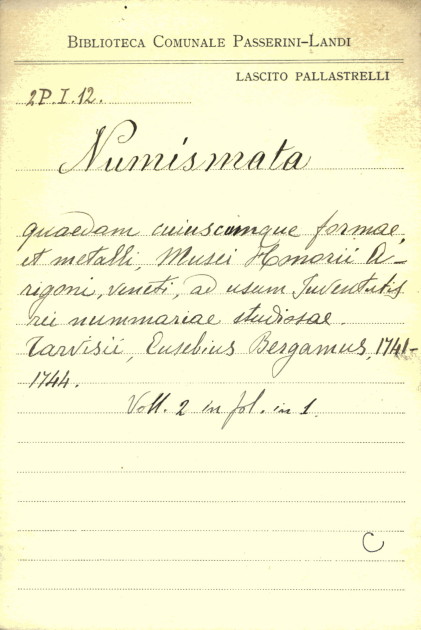 BIBLIOTECA COMUNALE PASSERINI-LANDI
LASCITO PALLASTRELLI
2P.I.12.
Numismata
quaedam cuiuscumque formae,
et metalli, Musei Honorii A-
rigoni, veneti, ad usum Juventutis
rei nummariae studiosae.
Tarvisii, Eusebius Bergamus, 1741-
1744.
Voll. 2 in fol. in 1.
C